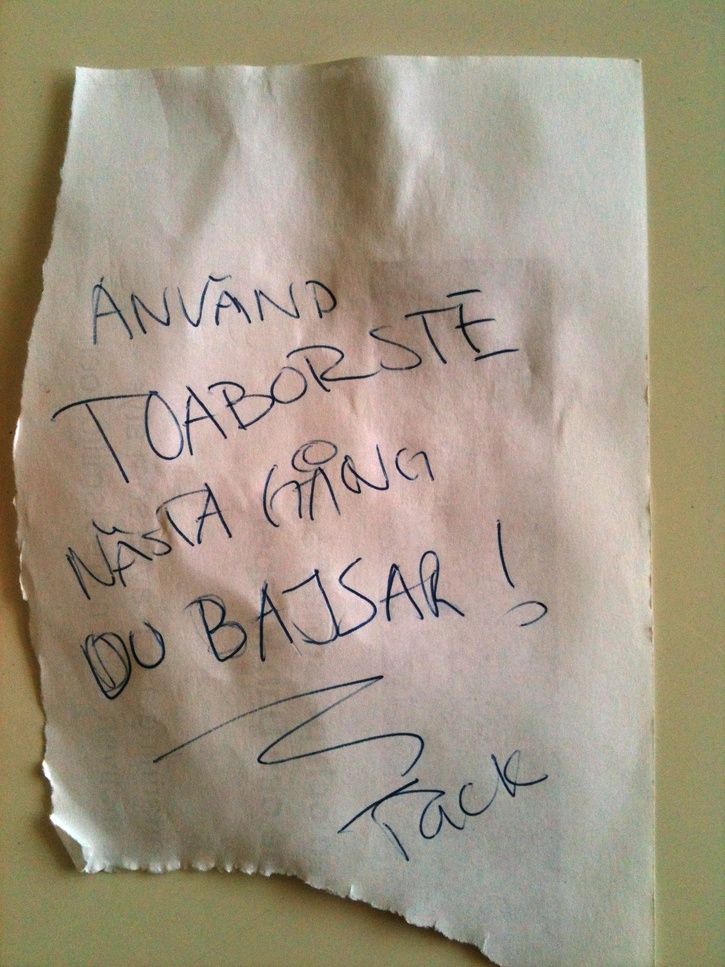 ANVÄND
TOABORSTE
NÄSTA GÅNG
DU BAJSAR!
Tack